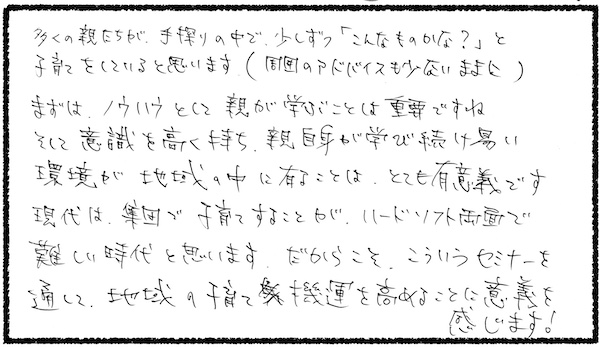 多くの親たちが、手探りの中で、少しずつ「こんなものかな?」と
子育てをしていると思います(周囲のアドバイスも少ないままに)
まずは、ノウハウとして親が学ぶことは重要ですね
そして意識を高く持ち、親自身が学び続け易い
環境が地域の中に有ることは、とても有意義です
現代は、集団で子育てすることが、ハードソフト両面で
難しい時代と思います。だからこそ、こういうセミナーを
通して、地域の子育て機運を高めることに意義を
感じます!